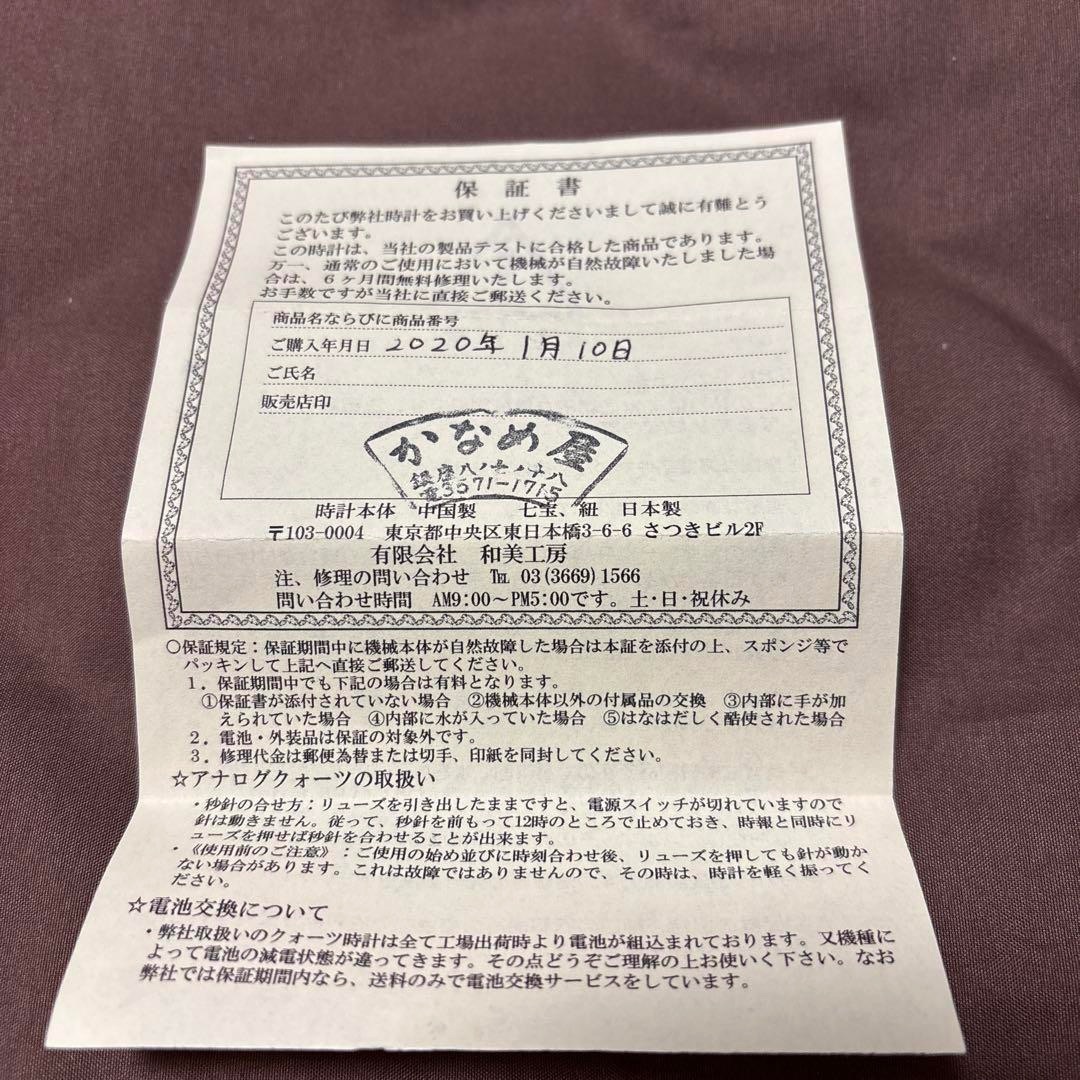 保証書
このたび弊社時計をお買い上げくださいまして誠に有難とう
ございます。
この時計は、当社の製品テストに合格した商品であります。
万一、通常のご使用において機械が自然故障いたしました場
合は、６ヶ月間無料修理いたします。
お手数ですが当社に直接ご郵送ください。
商品名ならびに商品番号
ご購入年月日 2020年1月10日
ご氏名
販売店印
かなめ屋
銀座八ノ七ノ十八
電3571-1715
時計本体 中国製 七宝、紐 日本製
〒103-0004 東京都中央区東日本橋3-6-6 さつきビル2F
有限会社 和美工房
注、修理の問い合わせ ℡ 03(3669)1566
問い合わせ時間 AM9:00～PM5:00です。土・日・祝休み
○保証規定：保証期間中に機械本体が自然故障した場合は本証を添付の上、スポンジ等で
パッキンして上記へ直接ご郵送してください。
１．保証期間中でも下記の場合は有料となります。
①保証書が添付されていない場合 ②機械本体以外の付属品の交換 ③内部に手が加
えられていた場合 ④内部に水が入っていた場合 ⑤はなはだしく酷使された場合
２．電池・外装品は保証の対象外です。
３．修理代金は郵便為替または切手、印紙を同封してください。
☆アナログクォーツの取扱い
・秒針の合せ方：リューズを引き出したままですと、電源スイッチが切れていますので
針は動きません。従って、秒針を前もって12時のところで止めておき、時報と同時にリ
ューズを押せば秒針を合わせることが出来ます。
・《使用前のご注意》：ご使用の始め並びに時刻合わせ後、リューズを押しても針が動か
ない場合があります。これは故障ではありませんので、その時は、時計を軽く振ってく
ださい。
☆電池交換について
・弊社取扱いのクォーツ時計は全て工場出荷時より電池が組込まれております。又機種に
よって電池の減電状態が違ってきます。その点どうぞご理解の上お使いく下さい。なお
弊社では保証期間内なら、送料のみで電池交換サービスをしています。